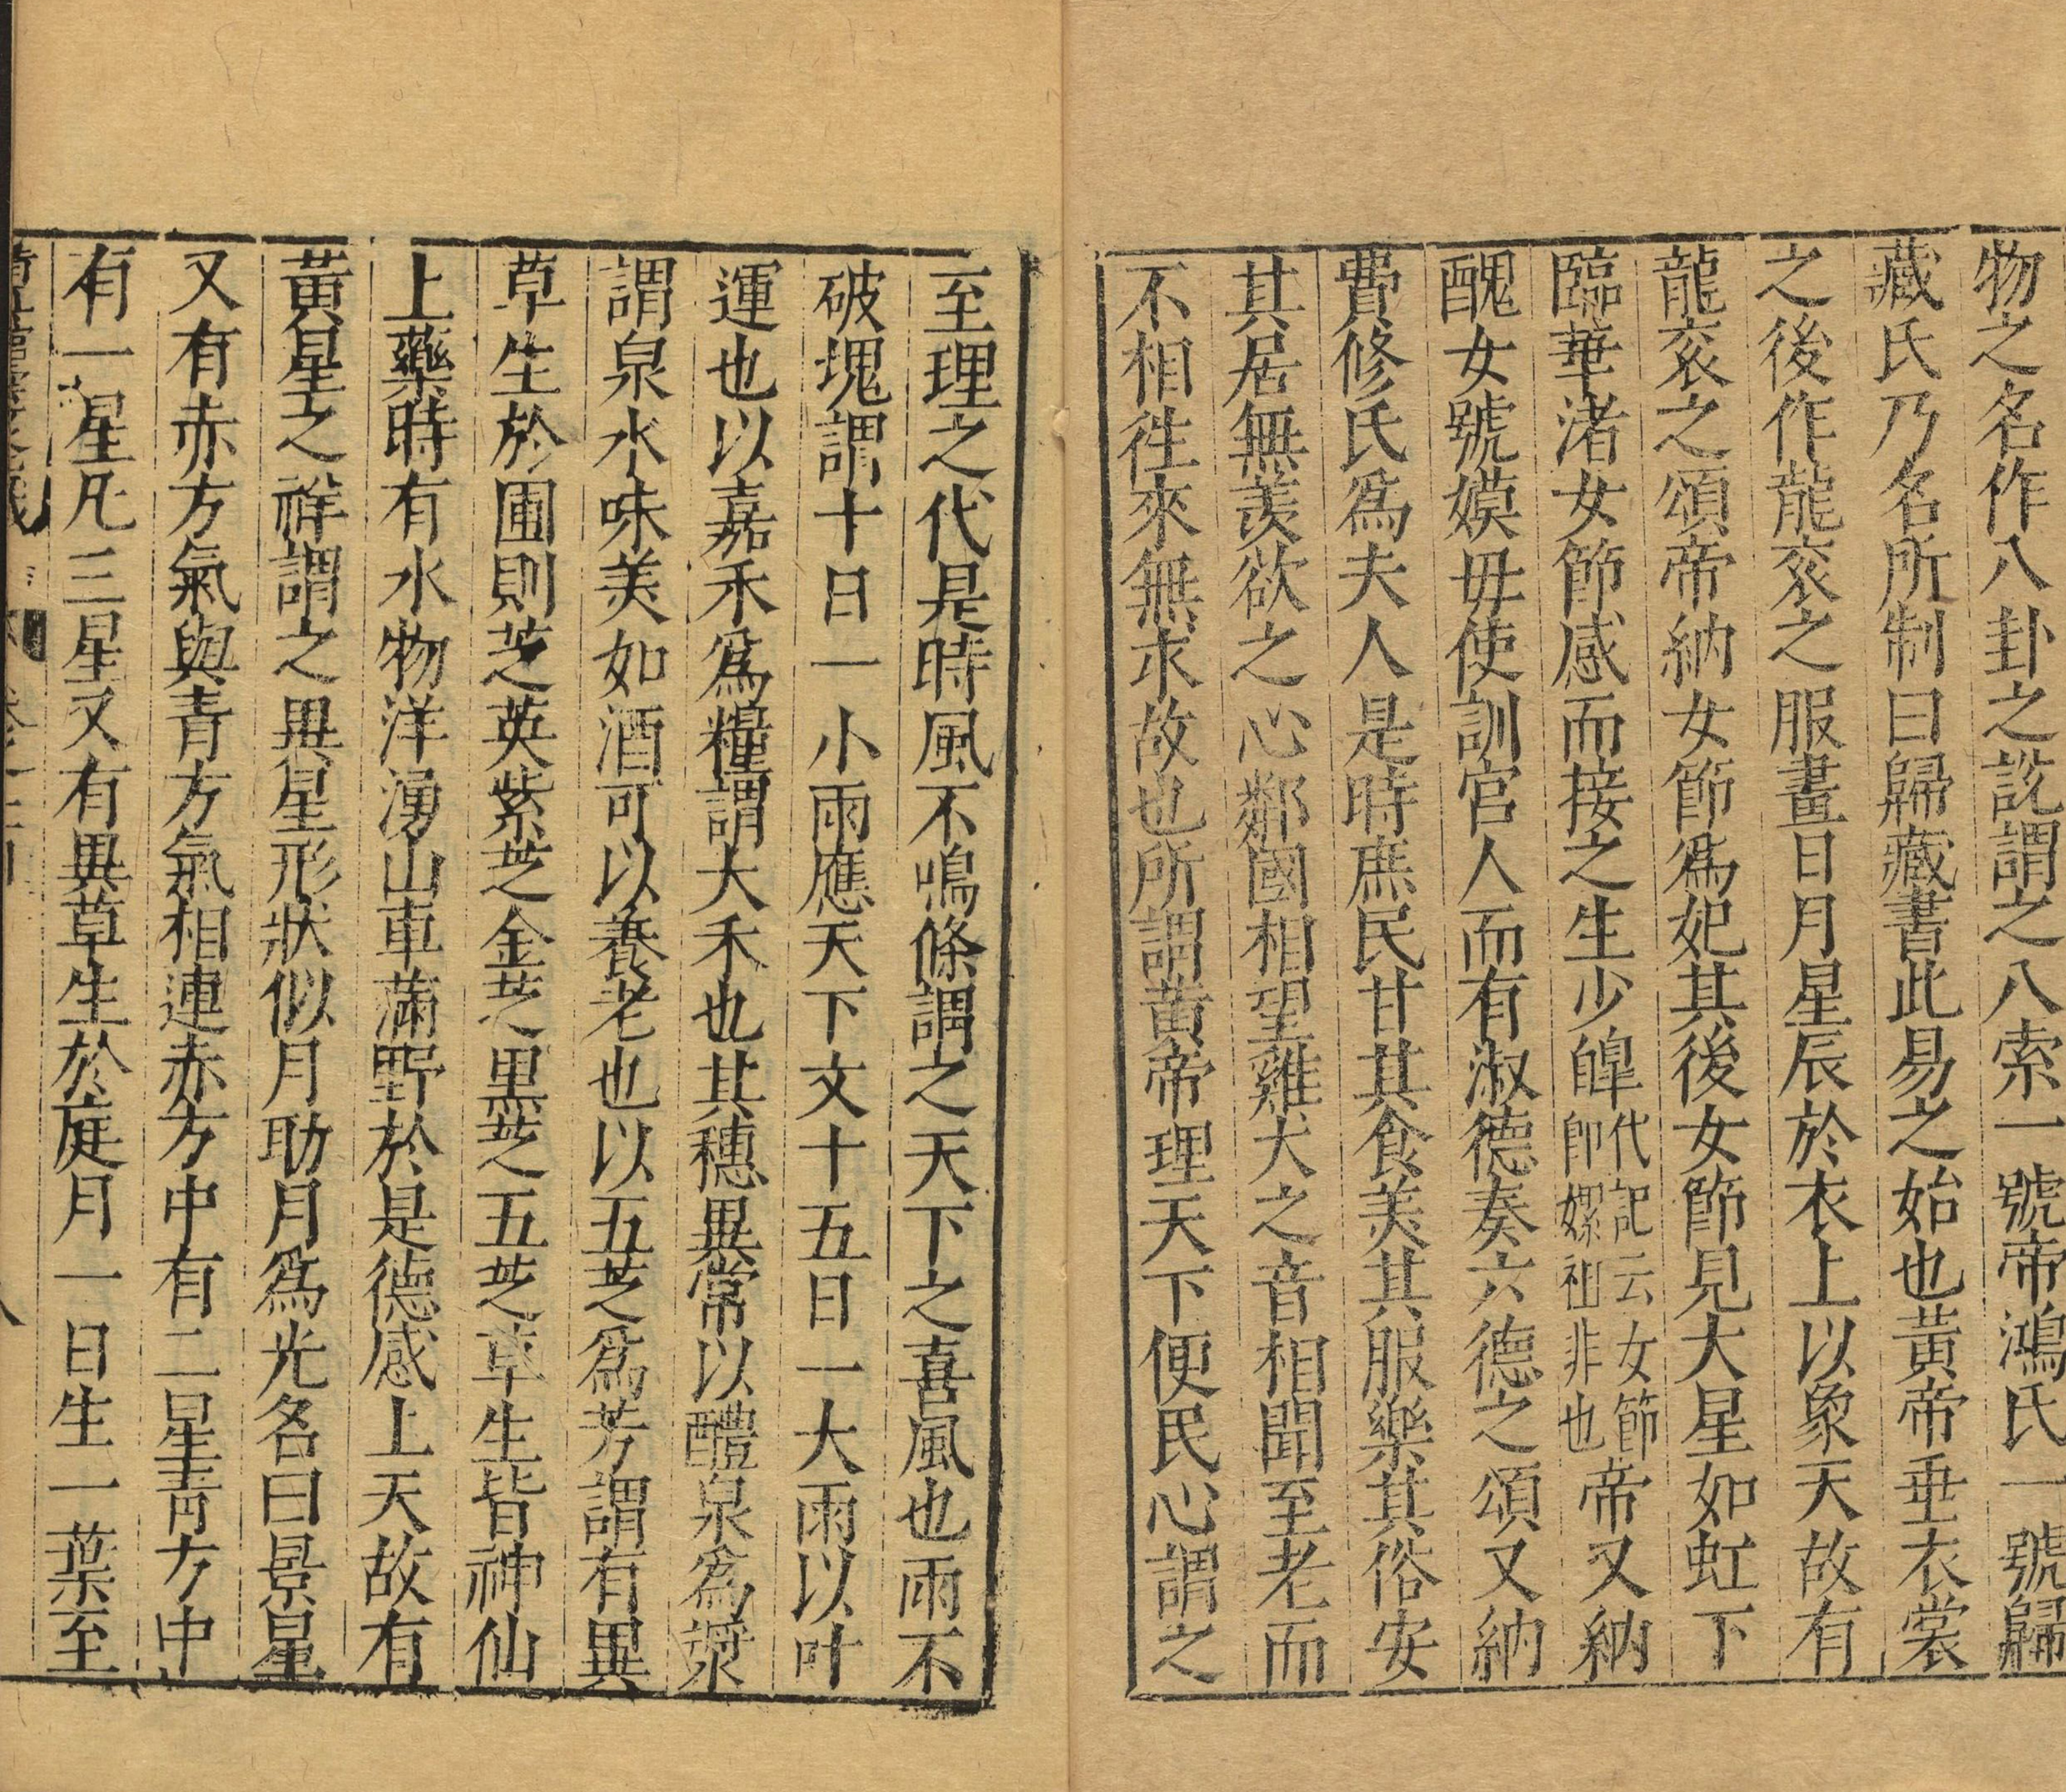 物之名作八卦之說謂之八索一號帝鴻氏一號歸
藏氏乃名所制曰歸藏書此易之始也黃帝垂衣裳
之後作龍袞之服畫日月星辰於衣上以象天故有
龍袞之頌帝納女節為妃其後女節見大星如虹下
臨華渚女節感而接之生少皥代記云女節即嫘祖非也帝又納
醜女號嫫毋使訓官人而有淑德奏六德之頌又納
費修氏為夫人是時庶民甘其食美其服樂其俗安
其居無羨欲之心鄰國相望雞犬之音相聞至老而
不相徃來無求故也所謂黃帝理天下便民心謂之
至理之代是時風不鳴條謂之天下之喜風也雨不
破塊謂十日一小雨應天下文十五日一大雨以叶
運也以嘉禾為糧謂大禾也其穗異常以醴泉為漿
謂泉水味美如酒可以養老也以五芝為芳謂有異
草生於圃則芝英紫芝金芝黑芝五芝草生皆神仙
上藥時有水物洋湧山車滿野於是德感上天故有
黃星之祥謂之異星形狀似月助月為光名曰景星
又有赤方氣與青方氣相連赤方中有二星青方中
有一星凡三星又有異草生於庭月一日生一葉至